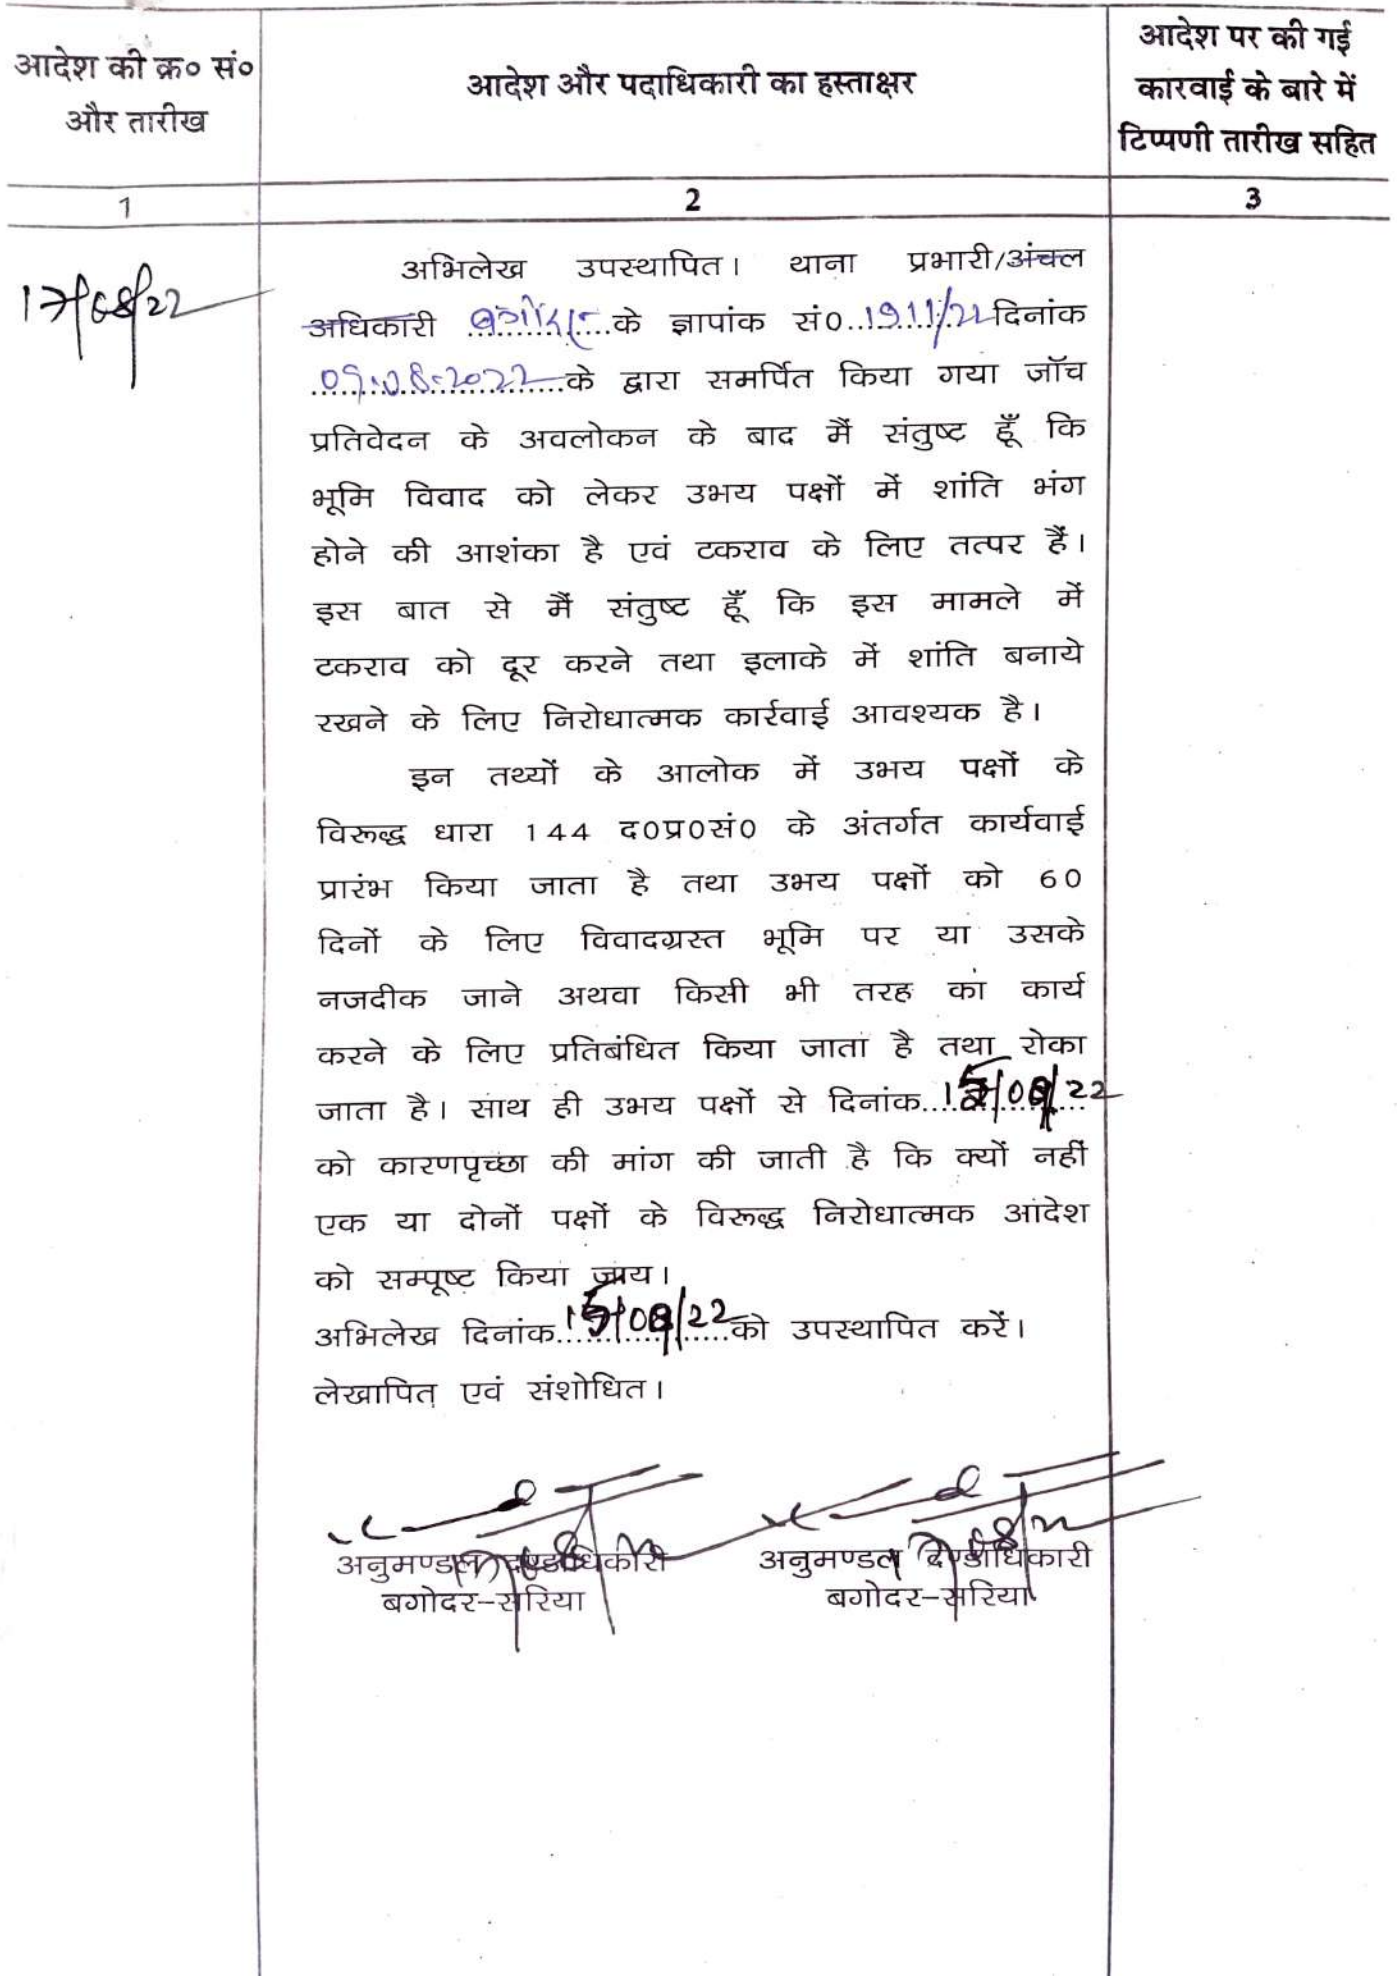 आदेश की क्र० सं०
और तारीख
आदेश और पदाधिकारी का हस्ताक्षर
आदेश पर की गई
कारवाई के बारे में
टिप्पणी तारीख सहित
1
2
3
17/08/22
अभिलेख उपस्थापित। थाना प्रभारी/अंचल
अधिकारी बगोदर के ज्ञापांक सं0..1911/22 दिनांक
09.08.2022 के द्वारा समर्पित किया गया जॉच
प्रतिवेदन के अवलोकन के बाद मैं संतुष्ट हूँ कि
भूमि विवाद को लेकर उभय पक्षों में शांति भंग
होने की आशंका है एवं टकराव के लिए तत्पर हैं।
इस बात से मैं संतुष्ट हूँ कि इस मामले में
टकराव को दूर करने तथा इलाके में शांति बनाये
रखने के लिए निरोधात्मक कार्रवाई आवश्यक है।
इन तथ्यों के आलोक में उभय पक्षों के
विरूद्ध धारा 144 द0प्र0सं0 के अंतर्गत कार्यवाई
प्रारंभ किया जाता है तथा उभय पक्षों को 60
दिनों के लिए विवादग्रस्त भूमि पर या उसके
नजदीक जाने अथवा किसी भी तरह का कार्य
करने के लिए प्रतिबंधित किया जाता है तथा रोका
जाता है। साथ ही उभय पक्षों से दिनांक
को कारणपृच्छा की मांग की जाती है कि क्यों नहीं
एक या दोनों पक्षों के विरूद्ध निरोधात्मक आदेश
को सम्पूष्ट किया जाय।
अभिलेख दिनांक को उपस्थापित करें।
लेखापित एवं संशोधित।
अनुमण्डल दण्डाधिकारी अनुमण्डल दण्डाधिकारी
बगोदर-सरिया बगोदर-सरिया